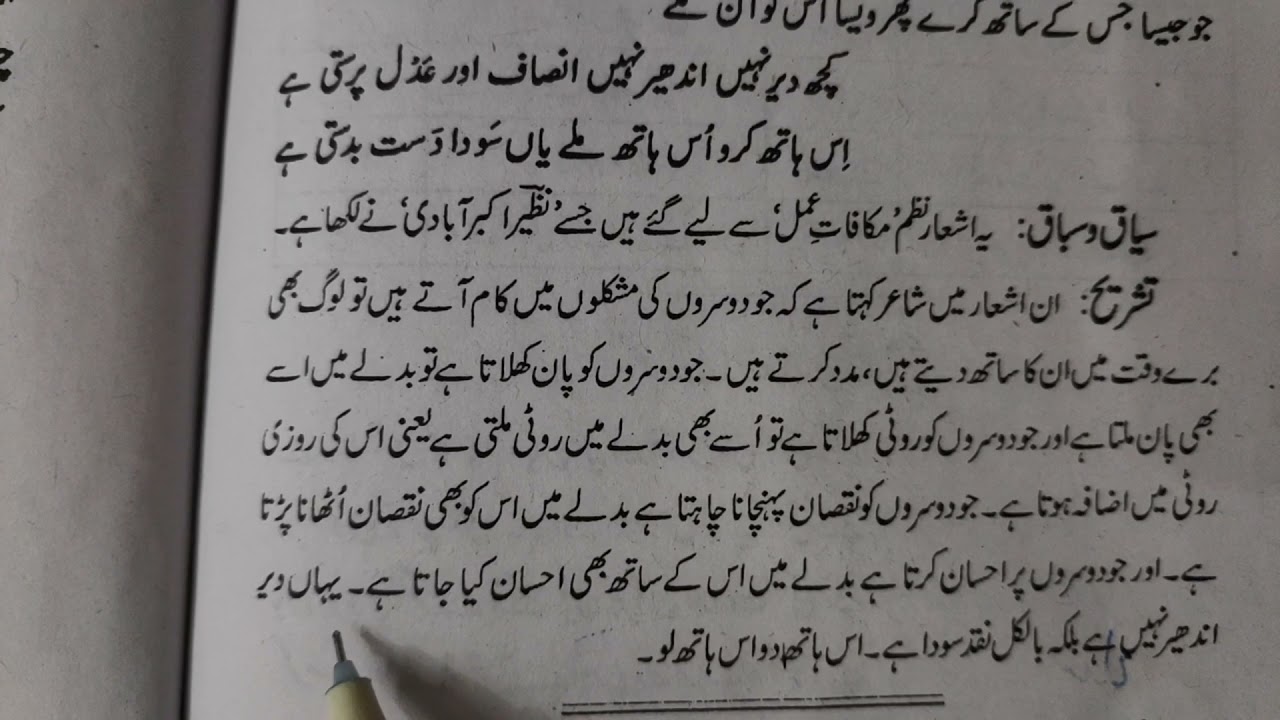 جو جیسا جس کے ساتھ کرے پھر ویسا اس کو آن ملے
کچھ دیر نہیں اندھیر نہیں انصاف اور عَدْل پرستی ہے
اِس ہاتھ کرو اُس ہاتھ ملے یاں سَودا دَست بدستی ہے
سیاق و سباق: یہ اشعار نظم ’مکافاتِ عمل‘ سے لیے گئے ہیں جسے ’نظیرؔ اکبر آبادی‘ نے لکھا ہے۔
تشریح: ان اشعار میں شاعر کہتا ہے کہ جو دوسروں کی مشکلوں میں کام آتے ہیں تو لوگ بھی
برے وقت میں ان کا ساتھ دیتے ہیں، مدد کرتے ہیں۔ جو دوسروں کو پان کھلاتا ہے تو بدلے میں اسے
بھی پان ملتا ہے اور جو دوسروں کو روٹی کھلاتا ہے تو اُسے بھی بدلے میں روٹی ملتی ہے یعنی اس کی روزی
روٹی میں اضافہ ہوتا ہے۔ جو دوسروں کو نقصان پہنچانا چاہتا ہے بدلے میں اس کو بھی نقصان اُٹھانا پڑتا
ہے۔ اور جو دوسروں پر احسان کرتا ہے بدلے میں اس کے ساتھ بھی احسان کیا جاتا ہے۔ یہاں دیر
اندھیر نہیں ہے بلکہ بالکل نقد سودا ہے۔ اس ہاتھ دو اس ہاتھ لو۔